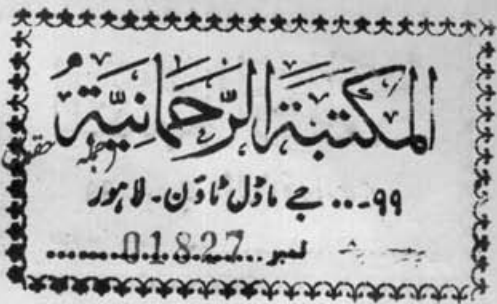 المكتبة الرَّحمَانيَّةُ
۹۹... جے ماڈل ٹاؤن - لاہور
نمبر ..... 01827 .....